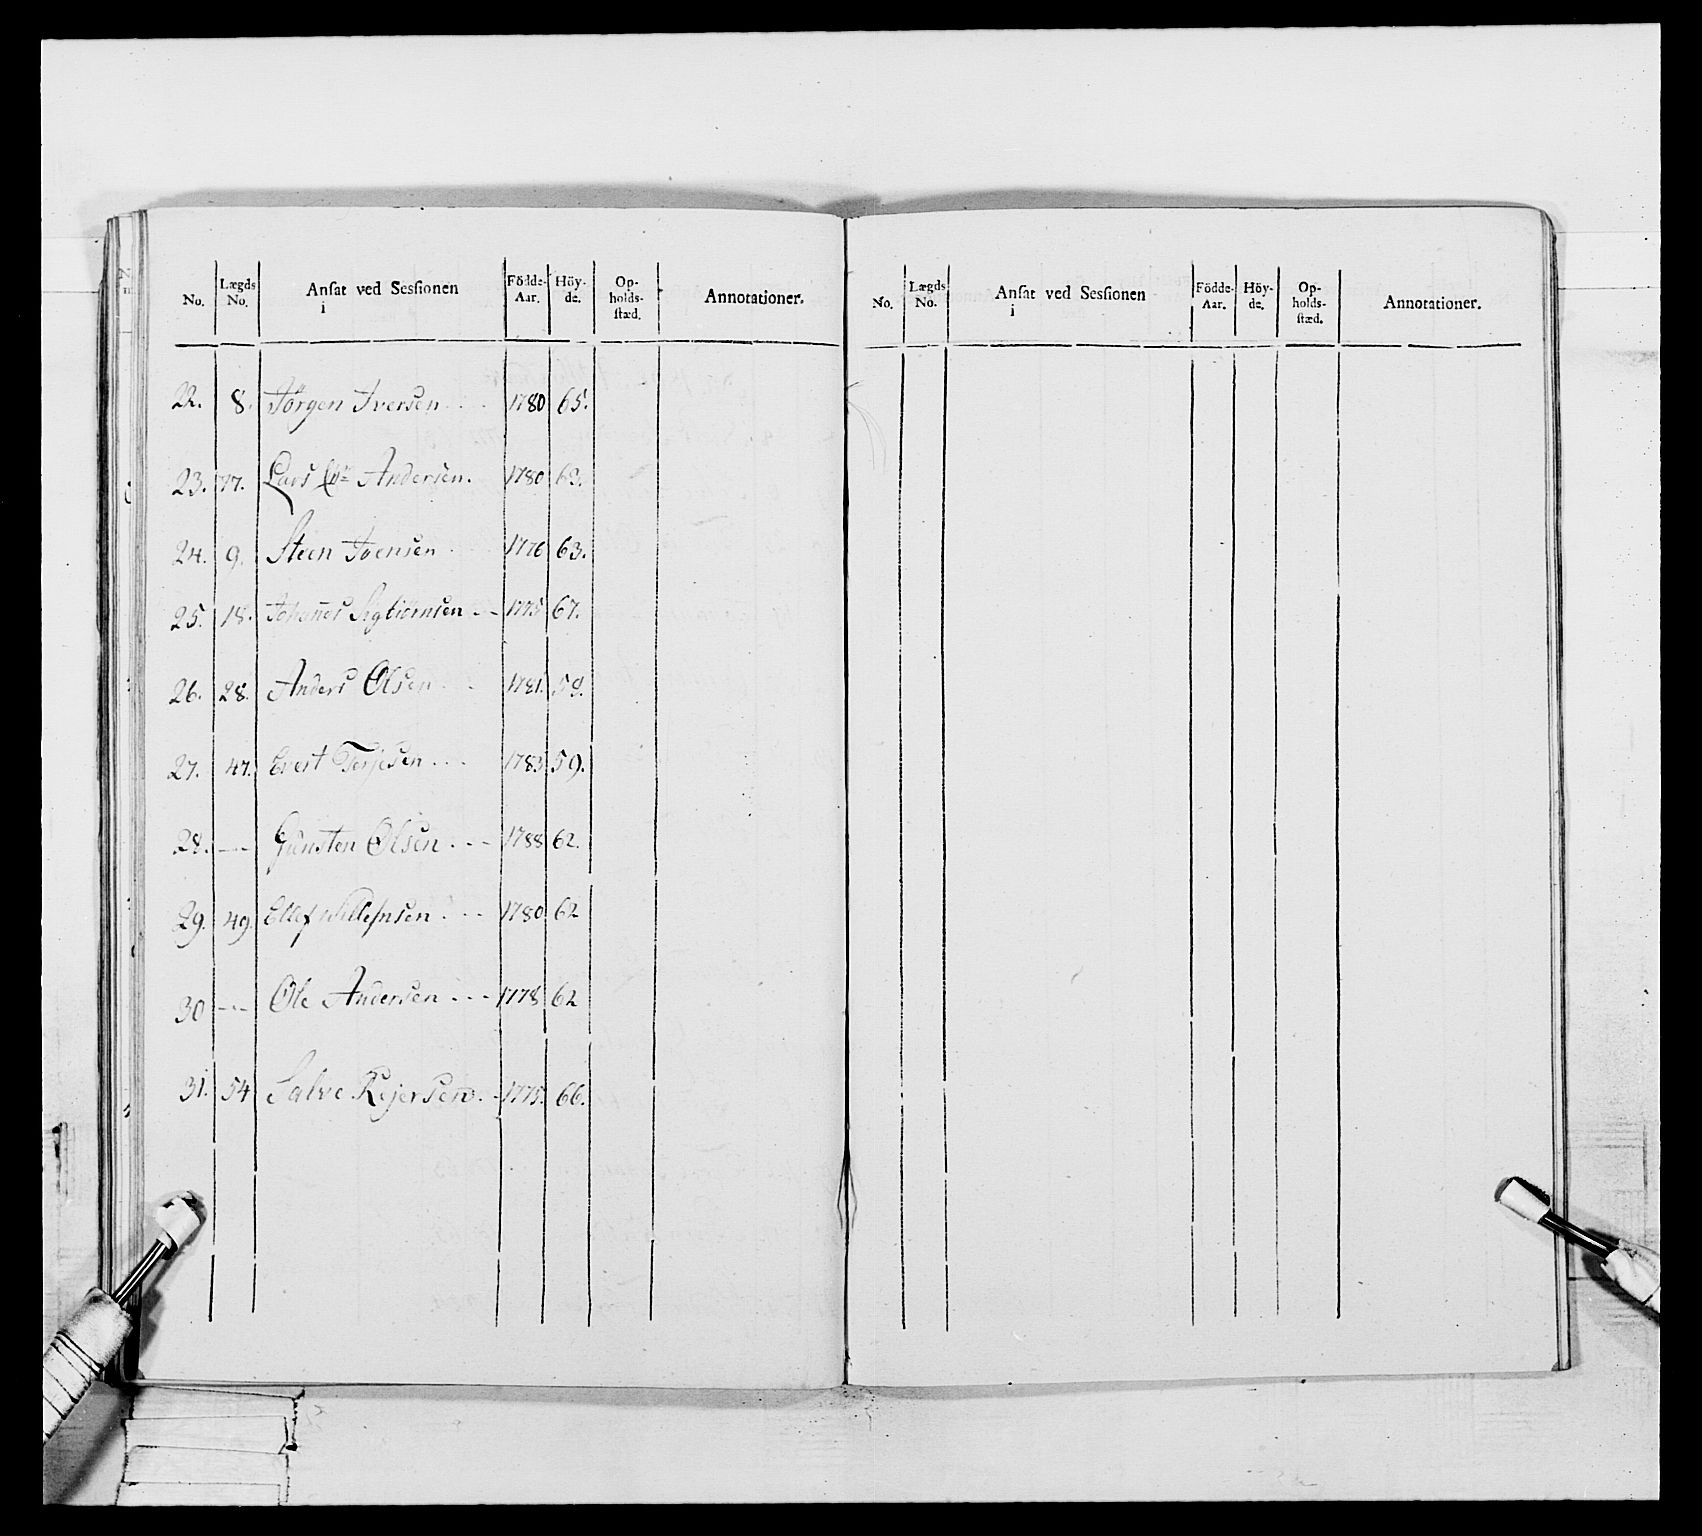 No. Lægds No. Ansat ved Sessionen i Födde-Aar. Höy-de. Op-holds-stæd. Annotationer.
22. 8. Jörgen Iversen 1780 65.
23. 17. Lars Andersen. 1780 63.
24. 9. Steen Ivensen 1776 63.
25. 18. Johannes 1775 67.
26. 28. Anders Olsen 1781. 59.
27. 47. Evert Terjesen 1783 59.
28. — Gunsten Olsen 1788 62.
29. 49. Ellef 1780 62
30 — Ole Andersen 1778 62
31. 54 Salve Rejersen 1775. 66.
No. Lægds No. Ansat ved Sessionen i Födde-Aar. Höy-de. Op-holds-stæd. Annotationer.